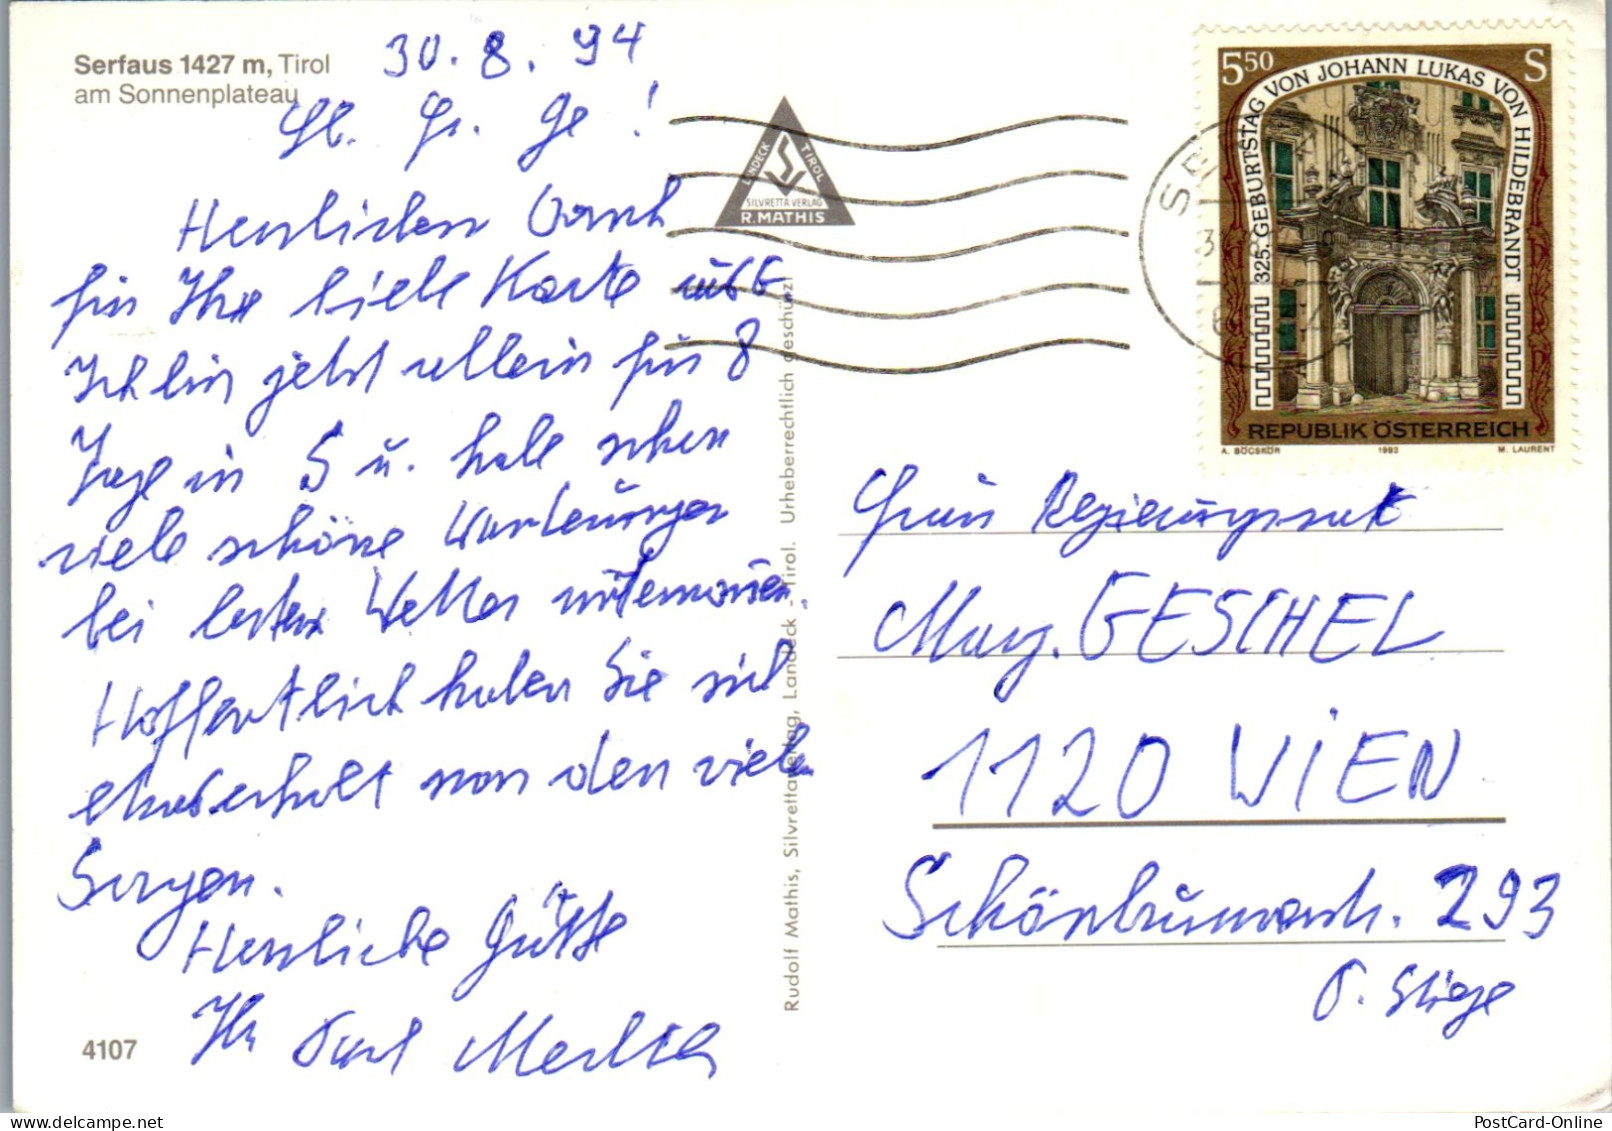 Serfaus 1427 m, Tirol
am Sonnenplateau
30. 8. 94
Lb. Fr. Ge!
Herzlichen Dank
für Ihre liebe Karte
Ich bin jetzt allein für 8
Tage in S u. habe schon
viele schöne Wanderungen
bei bestem Wetter unternommen.
Hoffentlich haben Sie sich
etwas erholt von den vielen
Sorgen.
Herzliche Grüße
Ihr Karl
4107
LANDECK TIROL
SILVRETTA VERLAG
R. MATHIS
Rudolf Mathis, Silvrettaverlag, Landeck - Tirol. Urheberrechtlich geschützt
550 S
325. GEBURTSTAG VON JOHANN LUKAS VON HILDEBRANDT
REPUBLIK ÖSTERREICH
A. BÖCSKÖR 1993 M. LAURENT
Frau Regierungsrat
Mag. GESCHEL
1120 WIEN
Schönbrunnerstr. 293
6. Stiege
PostCard-Online